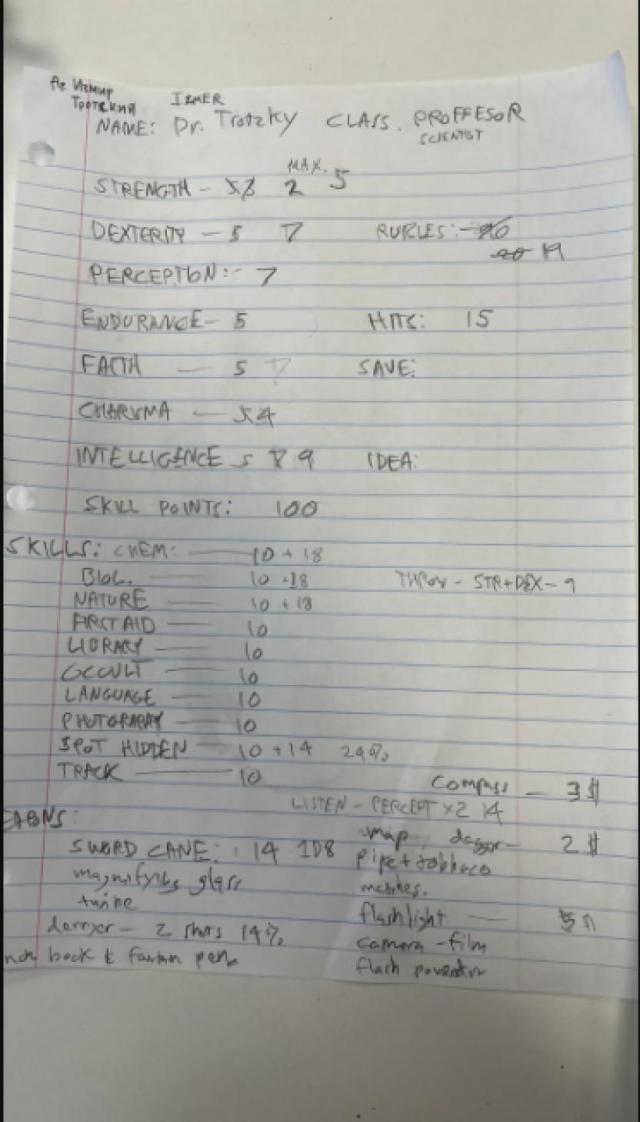 Др Измир
Тротский IZMER
NAME: Dr. Trotzky CLASS. PROFFESOR
SCIENTIST
MAX.
STRENGTH - 5 2 5
DEXTERITY - 5 7 RUBLES: -20
20 19
PERCEPTION: - 7
ENDURANCE - 5 HITS: 15
FAITH - 5 7 SAVE:
CHARISMA - 5 4
INTELLIGENCE 5 8 9 IDEA:
SKILL POINTS: 100
SKILLS: CHEM: 10 + 18
BIOL. 10 -18 THROW - STR+DEX - 9
NATURE 10 + 18
FIRST AID 10
LIBRARY 10
OCCULT 10
LANGUAGE 10
PHOTOGRAPHY 10
SPOT HIDDEN 10 + 14 24%
TRACK 10 Compass - 3$
LISTEN - PERCEPT X2 14
EAPONS: map dagger - 2$
SWORD CANE: 14 1D8 pipe + tobbaco
magnifying glass matches.
twine flashlight 5
derringer - 2 shots 14% camera - film
book & fountain pen flash powder